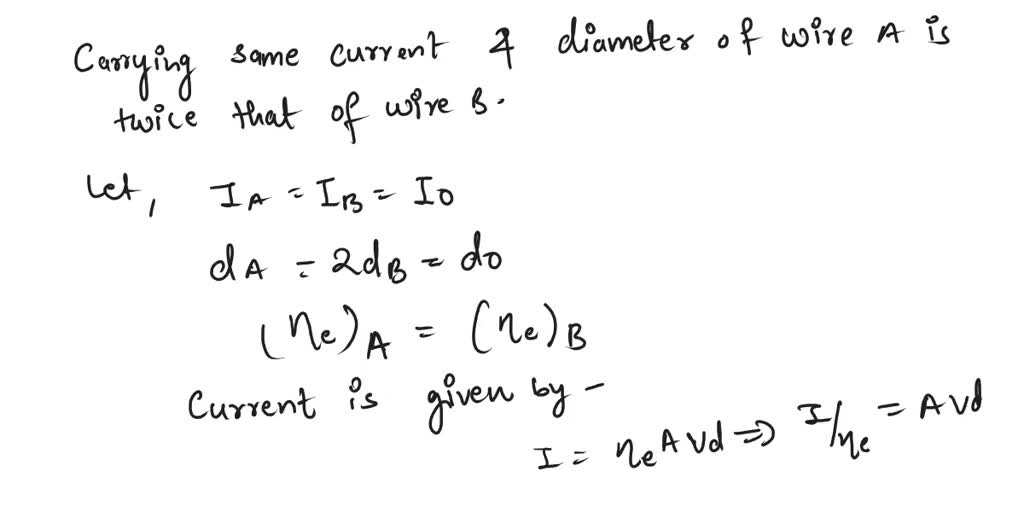 Carrying same current & diameter of wire A is
twice that of wire B.
Let, I_A = I_B = I_0
d_A = 2d_B = d_0
(n_e)_A = (n_e)_B
Current is given by -
I = n_e A Vd ⇒ I/n_e = A Vd